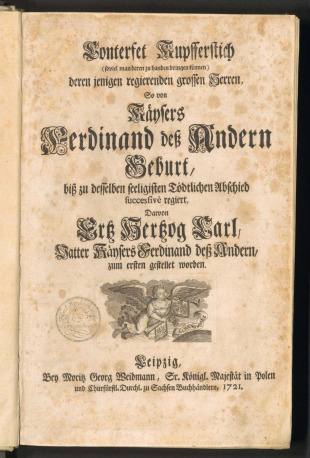 Conterfet Kupfferstich
(soviel man deren zu handen bringen können)
deren jenigen regierenden grossen Herren,
So von
Käysers
Ferdinand deß Andern
Geburt/
biß zu desselben seeligisten Tödtlichen Abschied
successivè regiert,
Darvon
Ertz Hertzog Carl/
Vatter Käysers Ferdinand deß Andern/
zum ersten gestellet worden.
Leipzig,
Bey Moritz Georg Weidmann, Sr. Königl. Majestät in Polen
und Churfürstl. Durchl. zu Sachsen Buchhändlern, 1721.